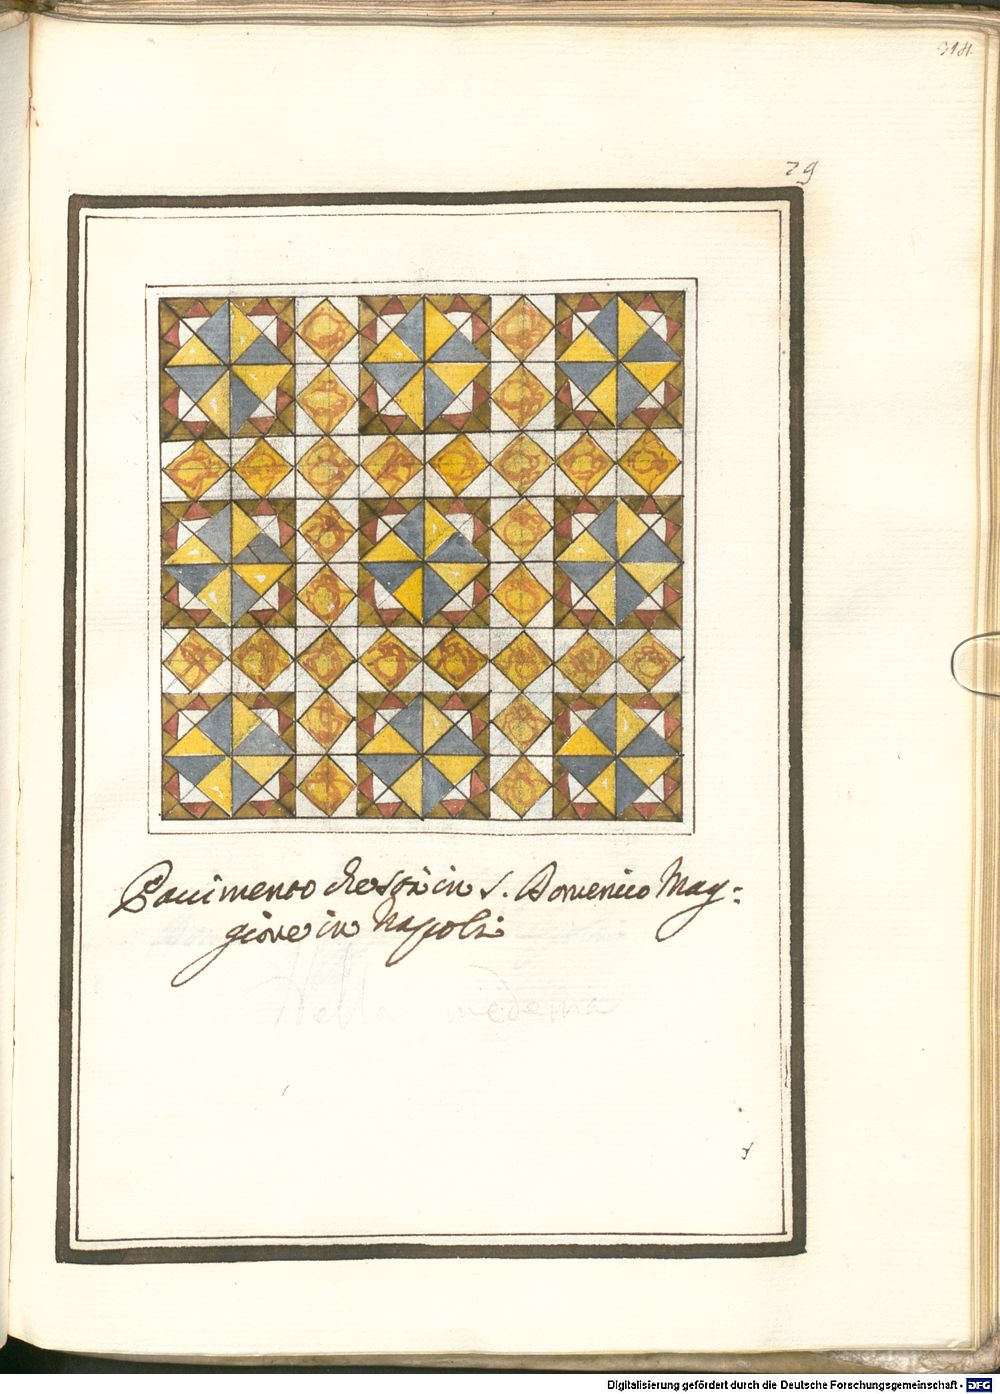 314.
29
Pauimento che stà in S. Domenico Mag-
giore in Napoli
Della medema
Digitalisierung gefördert durch die Deutsche Forschungsgemeinschaft - DFG